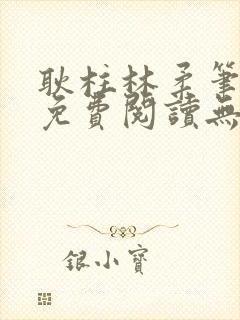 耿柱林柔筆
免費閱讀無
銀小寶